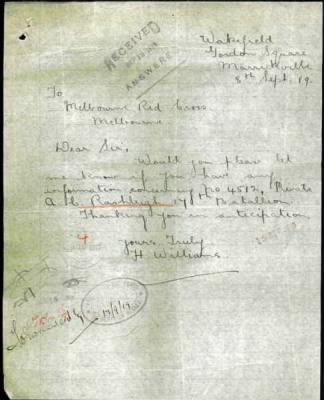 RECEIVED
ANSWERS
Wakefield
Gordon Square
Marrickville
8th Sept. 19.
To
Melbourne Red Cross
Melbourne
Dear Sir,
Would you please let
me know if you have any
information concerning No 4512, Private
A. C. Rashleigh 17th Battallion
Thanking you in anticipation
Yours Truly
H Williams
17/9/19